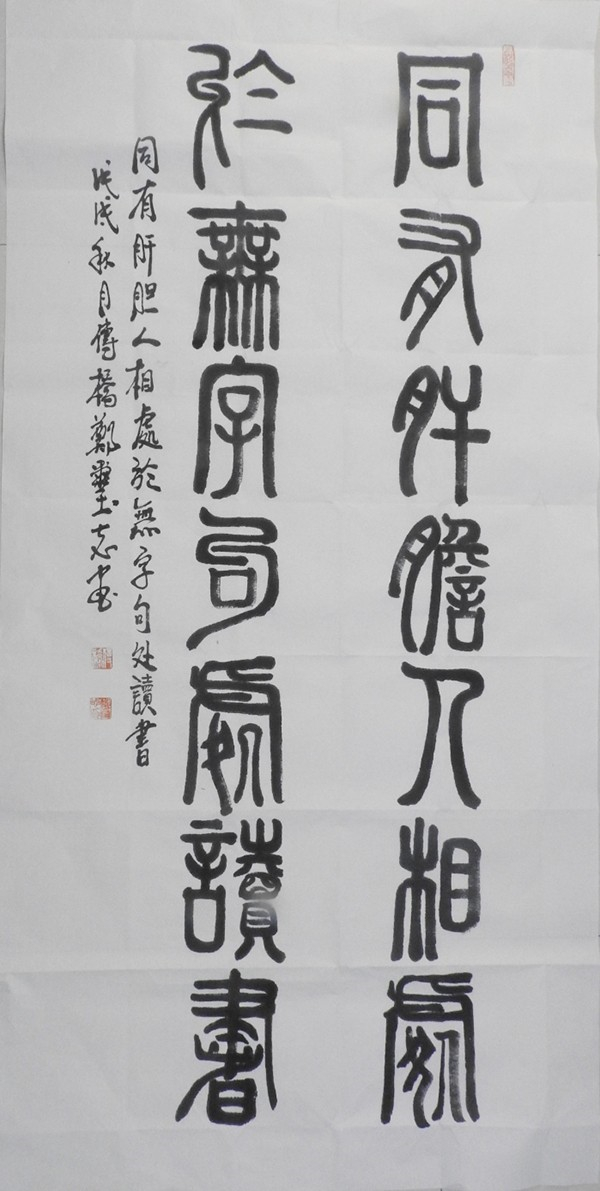 同有肝膽人相處
於無字句處讀書
同有肝胆人相處於無字句处讀書
戊戌秋月傳橋鄭墾志书